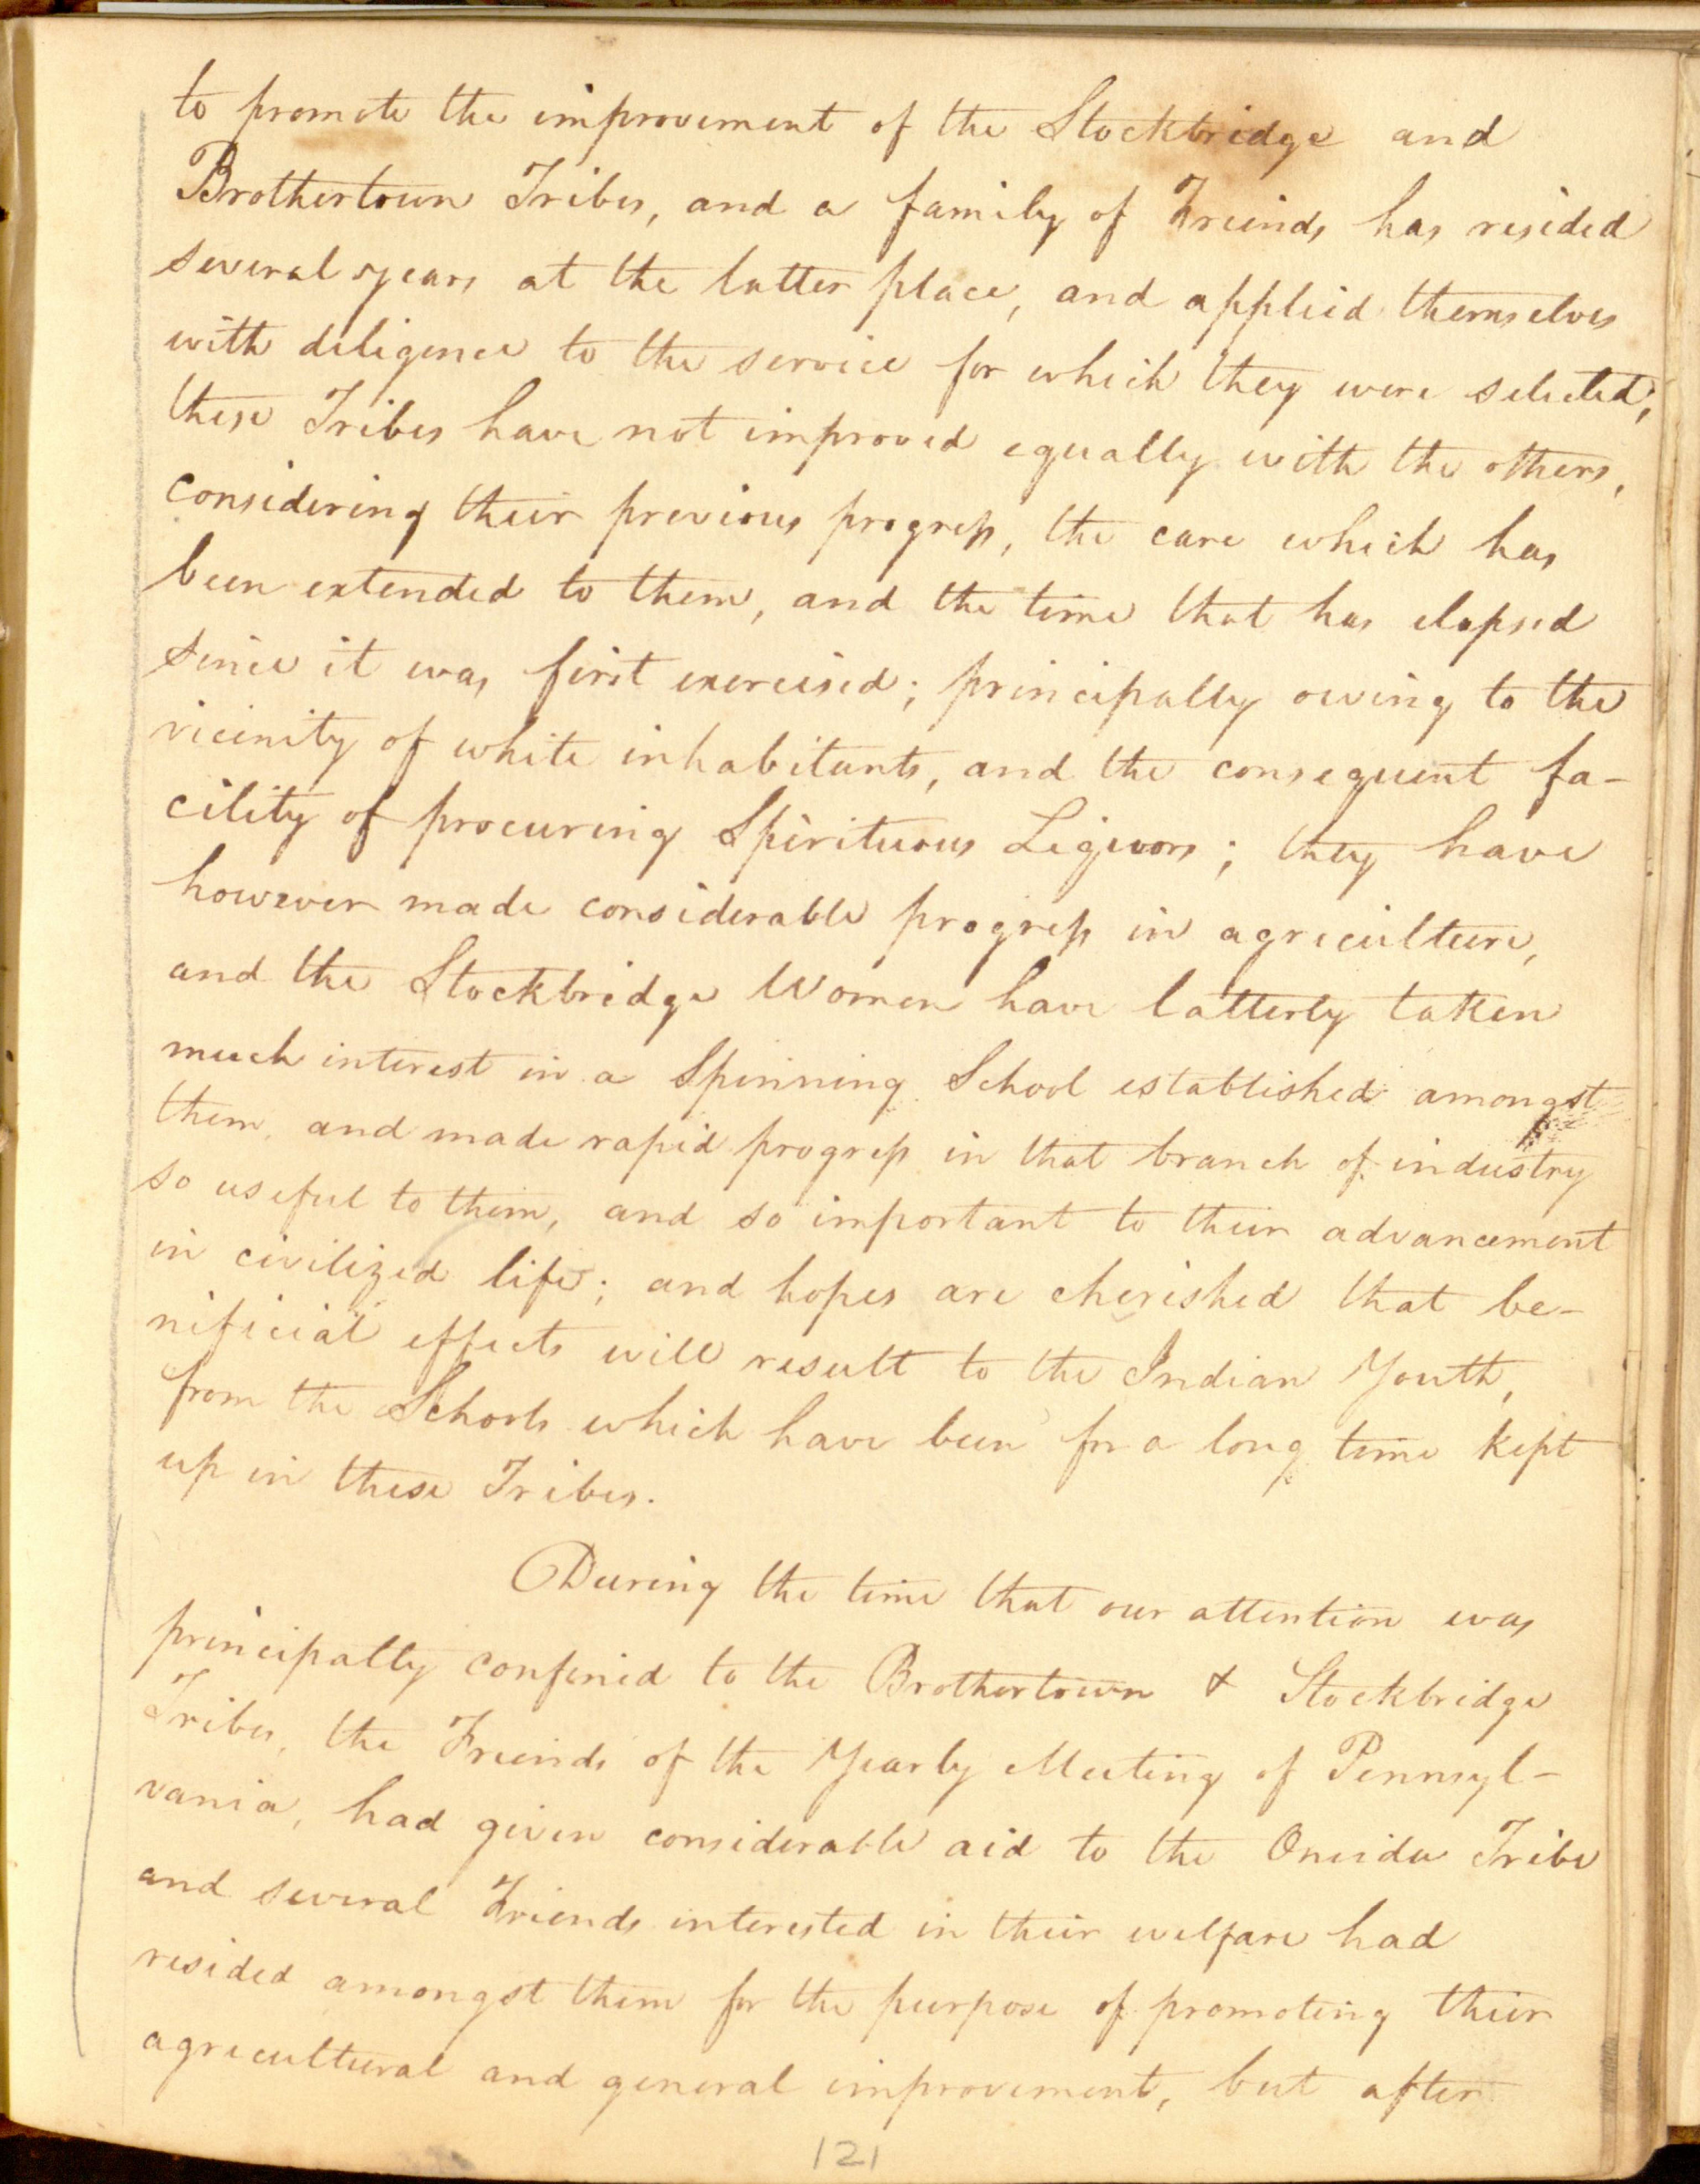 to promote the improvement of the Stockbridge and
Brothertown Tribes, and a family of Freinds has resided
several years at the latter place, and applied themselves
with diligence to the service for which they were selected;
these Tribes have not improved equally with the others,
considering their previous progress, the care which has
been extended to them, and the time that has elapsed
since it was first exercised; principally owing to the
vicinity of white inhabitants, and the consequent fa-
cility of procuring Spirituous Liquors; they have
however made considerable progress in agriculture,
and the Stockbridge Women have latterly taken
much interest in a Spinning School established amongst
them, and made rapid progress in that branch of industry
so useful to them, and so important to their advancement
in civilized life; and hopes are cherished that be-
nificial effects will result to the Indian Youth,
from the Schools which have been for a long time kept
up in these Tribes.
During the time that our attention was
principally confined to the Brothertown & Stockbridge
Tribes, the Freinds of the Yearly Meeting of Pennsyl-
vania, had given considerable aid to the Oneida Tribe
and several Friends interested in their welfare had
resided amongst them for the purpose of promoting their
agricultural and general improvement, but after
121